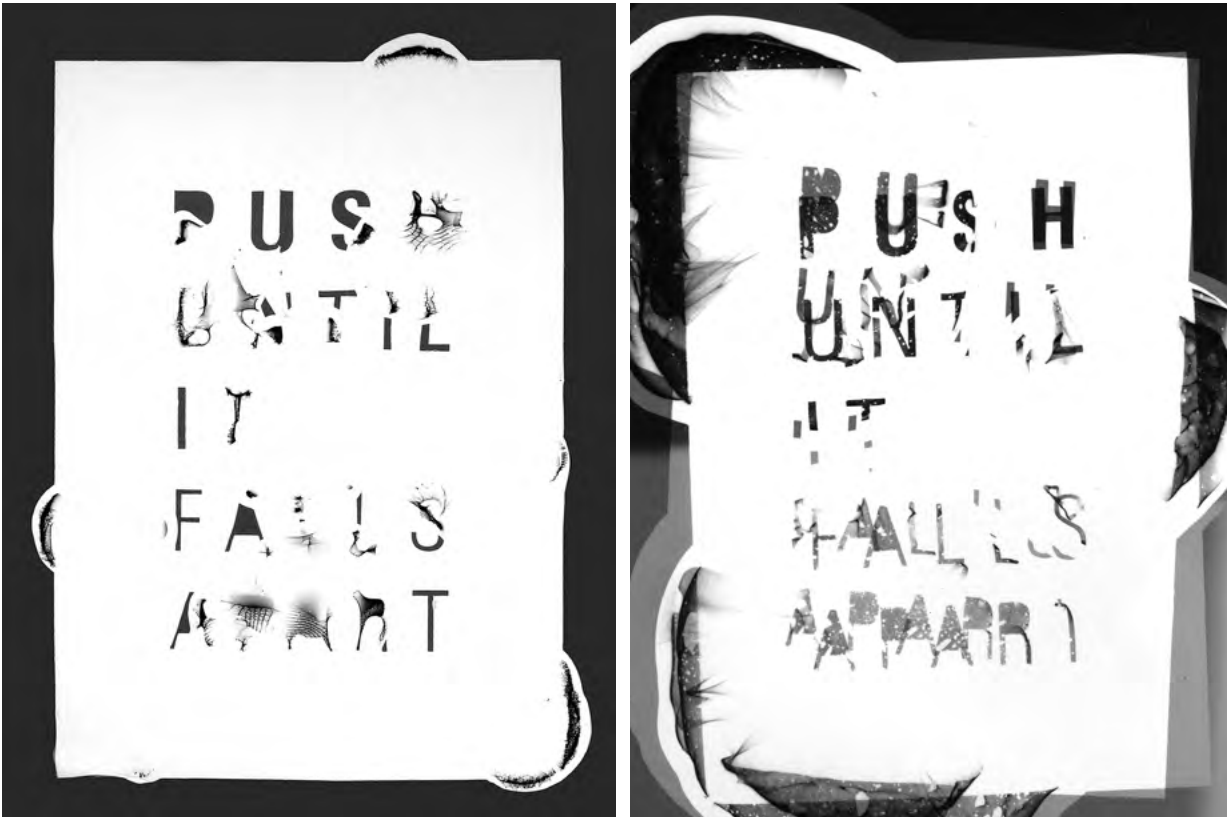 PUSH
UNTIL
IT
FALLS
APART
PUSH
UNTIL
IT
FALLS
APART